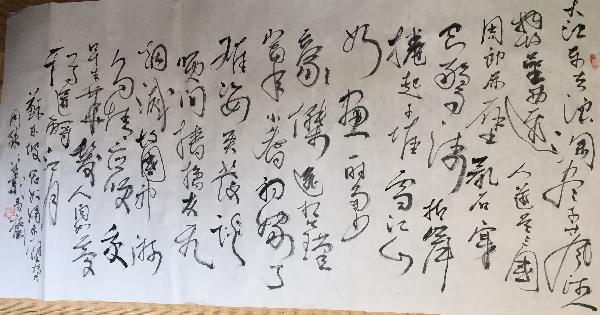 大江东去浪淘尽千古风流人
物故垒西边人道是三國
周郎赤壁乱石穿
空惊涛拍岸
捲起千堆雪江山
如画一时多少
豪傑遥想公瑾
当年小乔初嫁了
雄姿英发谈
笑间樯橹灰飞
烟灭故國神游
多情应笑我
早生华髮人间如梦
一尊还酹江月
苏东坡念奴娇